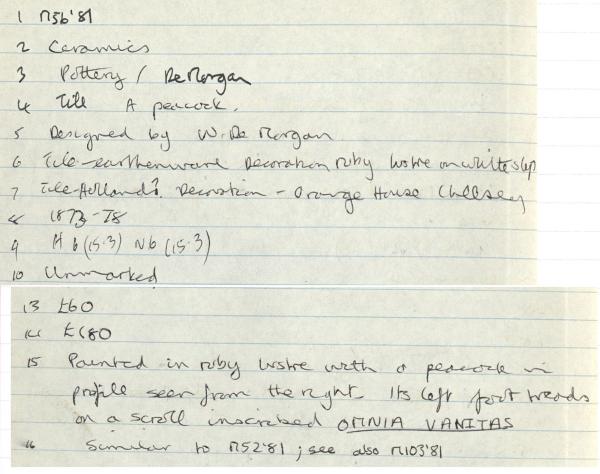 1 M56'81
2 Ceramics
3 Pottery / De Morgan
4 Tile A peacock.
5 Designed by W. De Morgan
6 Tile - earthenware Decoration ruby lustre on white slip
7 Tile Holland? Decoration - Orange House Chelsey
8 1873-78
9 H 6 (15.3) W 6 (15.3)
10 Unmarked
13 £60
14 £180
15 Painted in ruby lustre with a peacock in
profile seen from the right. Its left foot treads
on a scroll inscribed OMNIA VANITAS
16 Similar to M52'81; see also M103'81